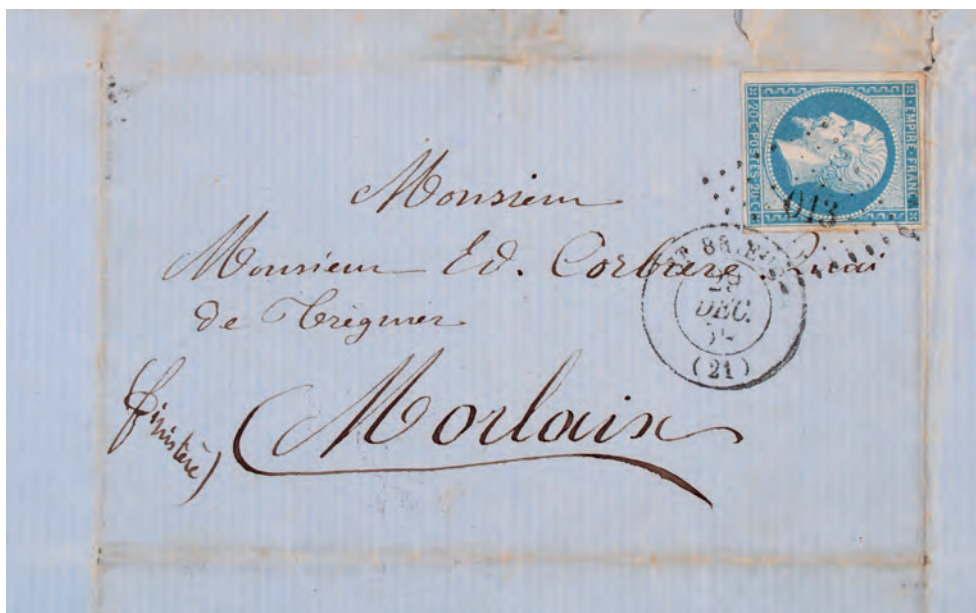 EMPIRE FRANC
20c POSTES 20c
013
ST BRIEUC
29
DEC.
(21)
Monsieur
Monsieur Ed. Corbiere Quai
de Tréguier
Morlaix
(finistère)